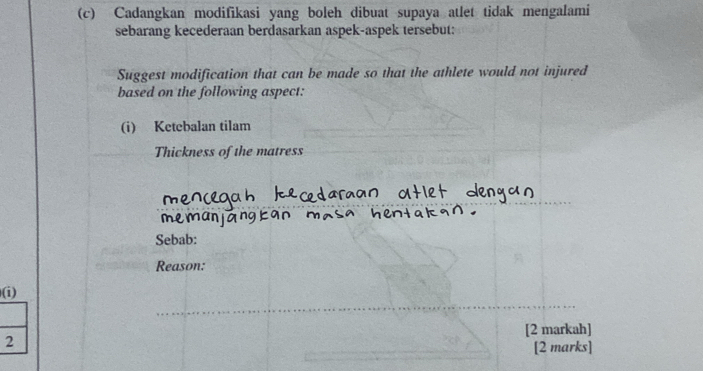 (c) Cadangkan modifikasi yang boleh dibuat supaya atlet tidak mengalami
sebarang kecederaan berdasarkan aspek-aspek tersebut:
Suggest modification that can be made so that the athlete would not injured
based on the following aspect:
(i) Ketebalan tilam
Thickness of the matress
mencegah kecedaraan atlet dengan
memanjangkan masa hentakan.
Sebab:
Reason:
(i)
2
[2 markah]
[2 marks]